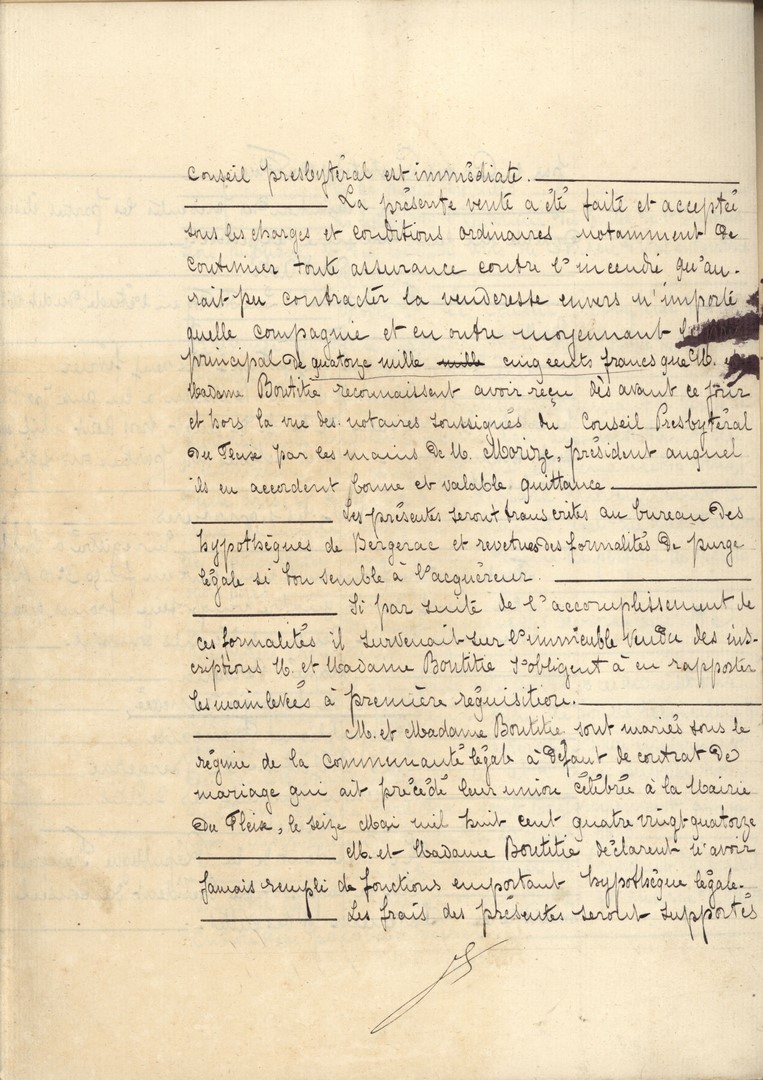 Conseil presbytéral est immédiate.
La présente vente a été faite et acceptée
sous les charges et conditions ordinaires notamment de
continuer toute assurance contre l'incendie qu'au-
rait pu contracter la venderesse envers n'importe
quelle compagnie et en outre moyennant
principal de quatorze mille mille cinq cents francs que M. et
Madame Boutitie reconnaissent avoir reçu dès avant ce jour
et hors la vue des notaires soussignés du Conseil Presbytéral
du Fleix par les mains de M. Morize, président auquel
ils en accordent bonne et valable quittance
Les présentes seront transcrites au bureau des
hypothèques de Bergerac et revetues des formalités de purge
légale si bon semble à l'acquéreur.
Si par suite de l'accomplissement de
ces formalités il survenait sur l'immeuble vendu des ins-
criptions M. et Madame Boutitie s'obligent à en rapporter
les mainlevées à première réquisition.
M. et Madame Boutitie sont mariés sous le
régime de la communauté légale à défaut de contrat de
mariage qui ait précédé leur union célébrée à la Mairie
du Fleix, le seize Mai mil huit cent quatre vingt quatorze
M. et Madame Boutitie déclarent n'avoir
jamais rempli de fonctions emportant hypothèque légale.
Les frais des présentes seront supportés